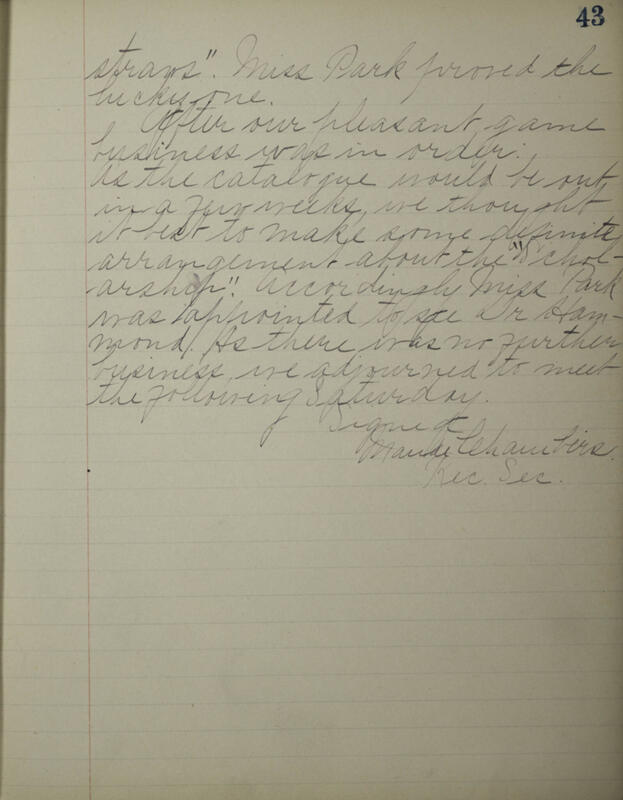 43
straws". Miss Park proved the
lucky one.
After our pleasant game
business was in order.
As the catalogue would be out
in a few weeks, we thought
it best to make some definite
arrangement about the "Schol-
arship". Accordingly Miss Park
was appointed to see Dr Ham-
mond. As there was no further
business, we adjourned to meet
the following Saturday.
Signed
Maude Chambers.
Rec. Sec.